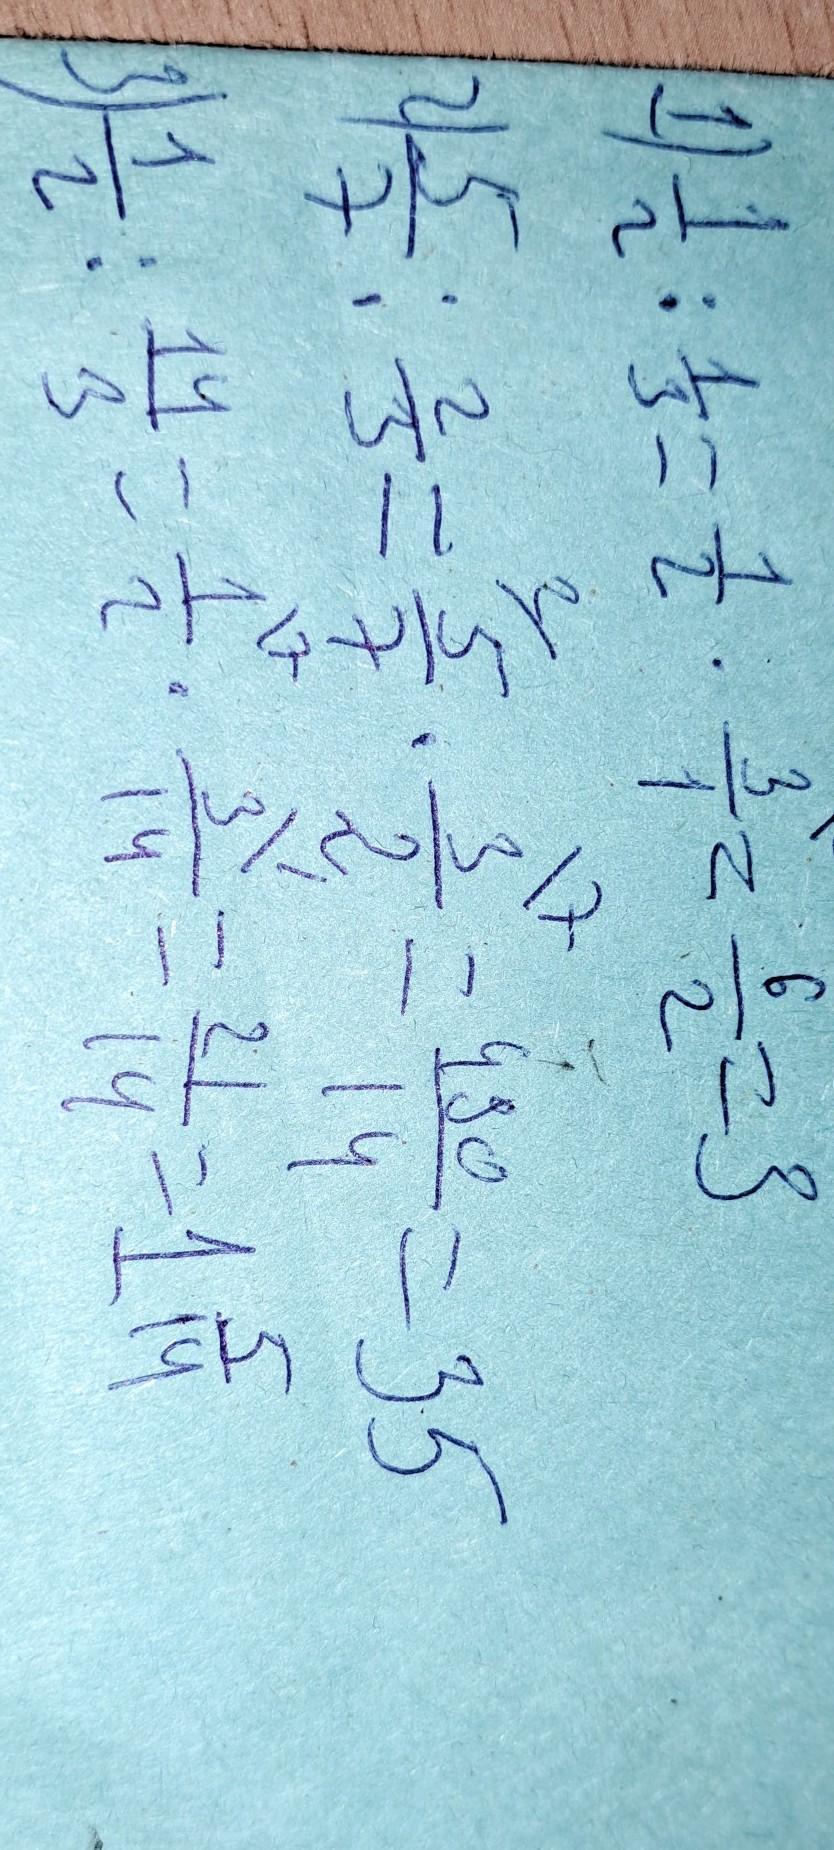 1) 1/2 : 1/3 = 1/2 · 3/1 = 6/2 = 3
2) 5/7 : 2/3 = 5/7 · 3/2 = 490/14 = 35
3) 1/2 : 14/3 = 1/2 · 3/14 = 21/14 = 1 7/14